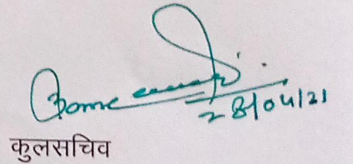 28/04/21
कुलसचिव